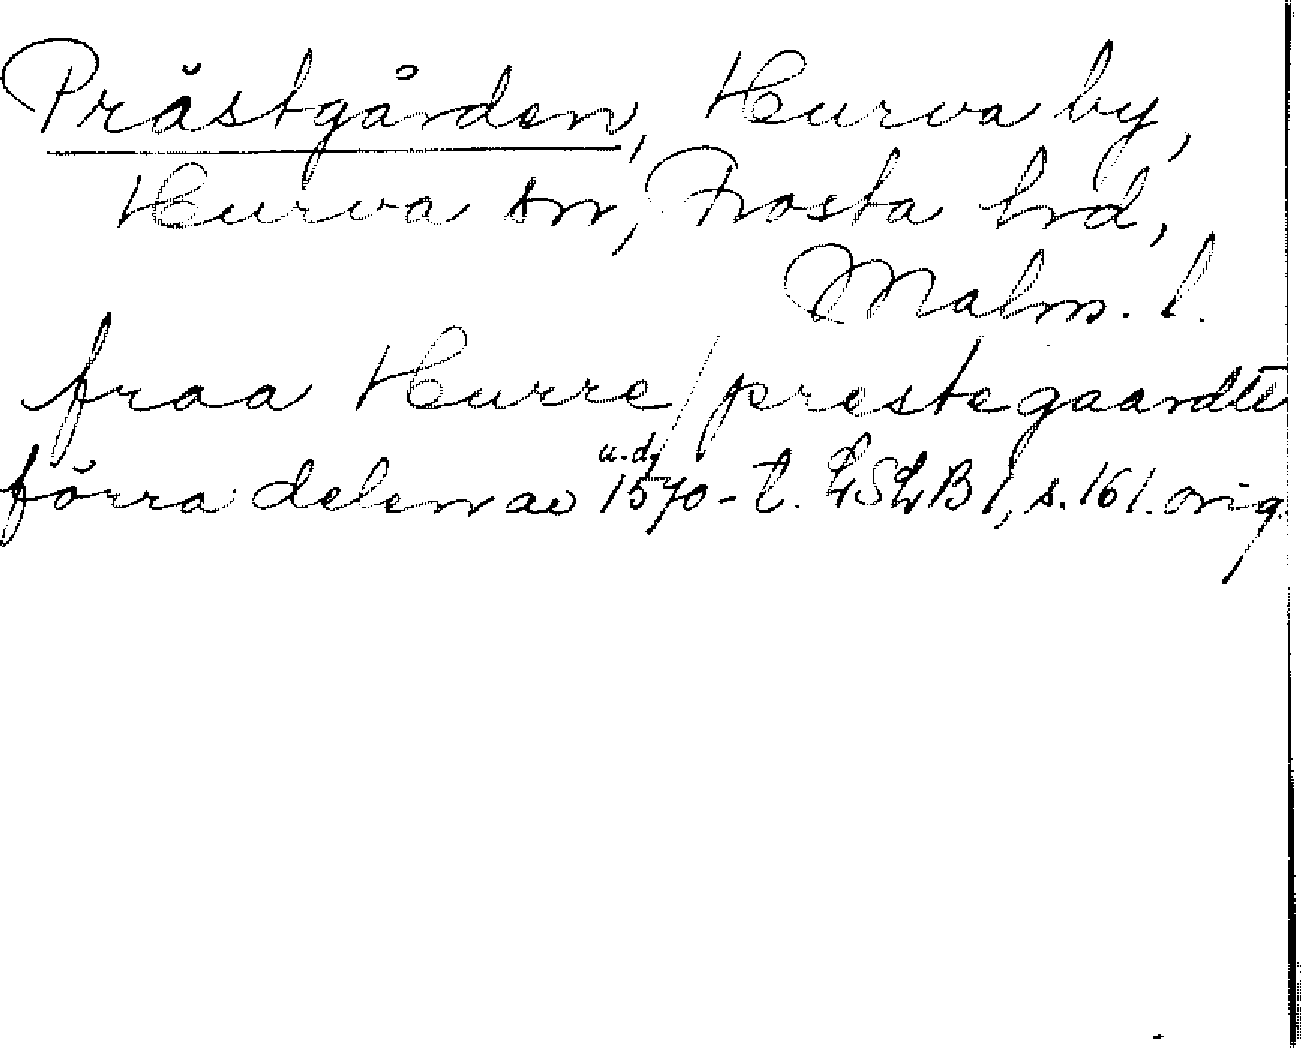 Prästgården, Hurva by,
Hurva sn, Frosta hrd,
Malm. l.
fraa Hurre/prestegaardte
u.d.
förra delen av 1570-t. LSLB 1, s. 161. orig.